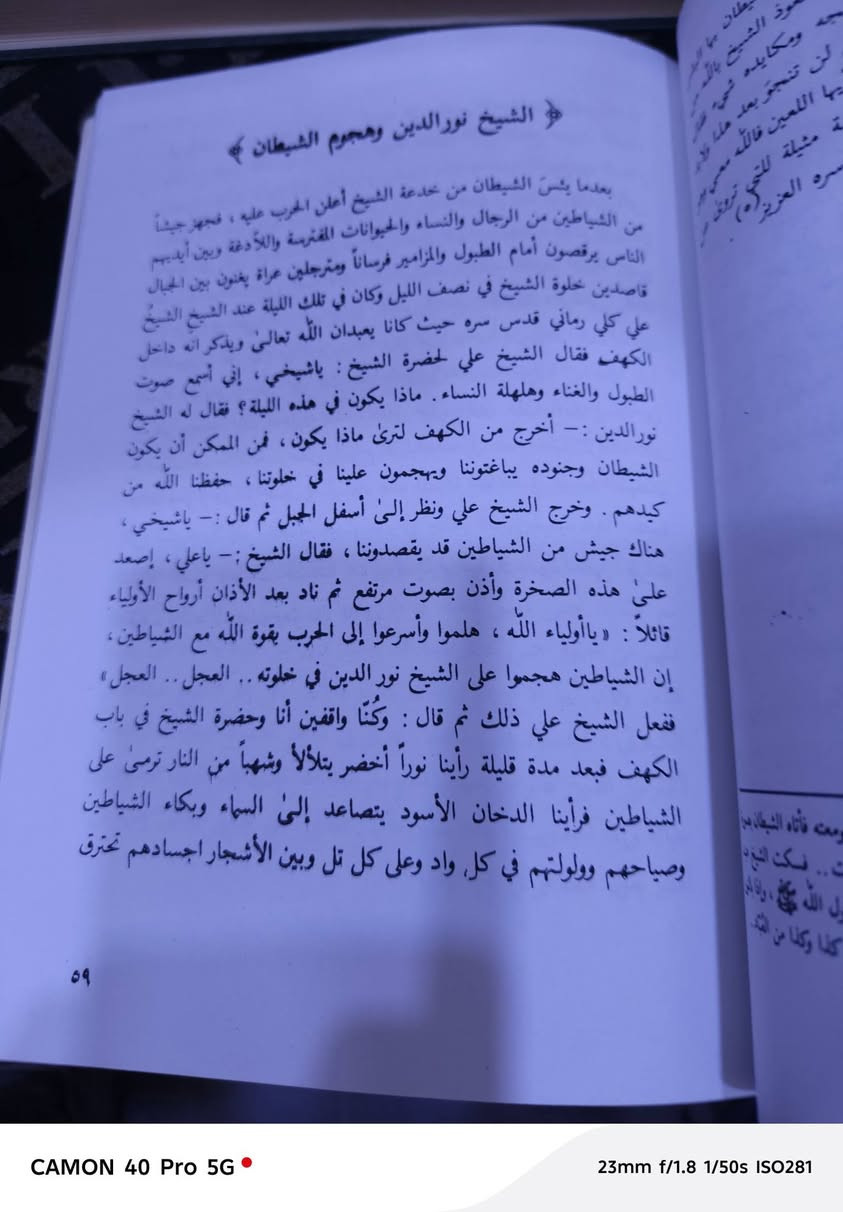 ﴿ الشيخ نورالدين وهجوم الشيطان ﴾
بعدما يئسَ الشيطان من خدعة الشيخ أعلن الحرب عليه ، فجهز جيشاً
من الشياطين من الرجال والنساء والحيوانات المفترسة واللّادغة وبين أيديهم
الناس يرقصون أمام الطبول والمزامير فرساناً ومترجلين عراة يغنون بين الجبال
قاصدين خلوة الشيخ في نصف الليل وكان في تلك الليلة عند الشيخ الشيخُ
علي كلي رماني قدس سره حيث كانا يعبدان الله تعالىٰ ويذكر انه داخل
الكهف فقال الشيخ علي لحضرة الشيخ : ياشيخي ، إني أسمع صوت
الطبول والغناء وهلهلة النساء . ماذا يكون في هذه الليلة ؟ فقال له الشيخ
نورالدين :– أخرج من الكهف لترىٰ ماذا يكون ، فمن الممكن أن يكون
الشيطان وجنوده يباغتوننا ويهجمون علينا في خلوتنا ، حفظنا الله من
كيدهم . وخرج الشيخ علي ونظر إلىٰ أسفل الجبل ثم قال :– ياشيخي ،
هناك جيش من الشياطين قد يقصدوننا ، فقال الشيخ :– ياعلي ، إصعد
علىٰ هذه الصخرة وأذن بصوت مرتفع ثم ناد بعد الأذان أرواح الأولياء
قائلاً : « ياأولياء الله ، هلموا وأسرعوا إلى الحرب بقوة الله مع الشياطين ،
إن الشياطين هجموا على الشيخ نور الدين في خلوته .. العجل .. العجل »
ففعل الشيخ علي ذلك ثم قال : وكُنّا واقفين أنا وحضرة الشيخ في باب
الكهف فبعد مدة قليلة رأينا نوراً أخضر يتلألأ وشهباً من النار ترمىٰ على
الشياطين فرأينا الدخان الأسود يتصاعد إلىٰ السماء وبكاء الشياطين
وصياحهم وولولتهم في كل واد وعلى كل تل وبين الأشجار اجسادهم تحترق
٥٩
الشيخ بالله
ومكايده
لن تنجوَ بعد هذا
اللعين فالله معي
مثيلة للتي تروىٰ
سره العزيز(٥) .
فأتاه الشيطان
.. فسكت الشيخ
الله ﷺ ،
كذا وكذا من
CAMON 40 Pro 5G
23mm f/1.8 1/50s ISO281